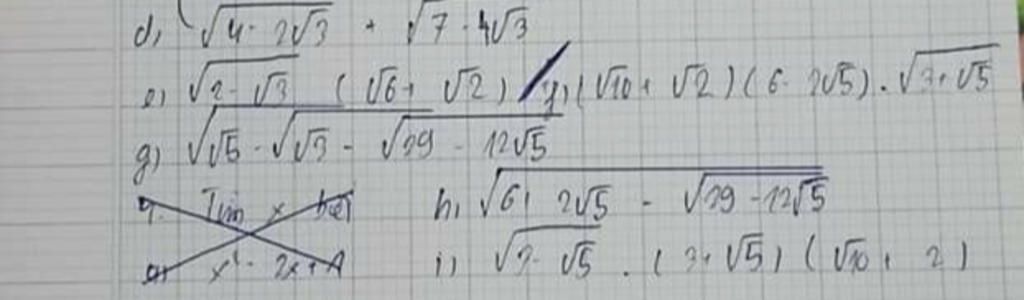 d, √(4 - 2√3) + √(7 - 4√3)
e) √(2 - √3) (√6 + √2) / f) (√10 + √2)(6 - 2√5) . √(3 + √5)
g) √(√5 - √(√3 - √(29 - 12√5)))
4. Tìm x
a) x² - 2x + 1
h, √(6 + 2√5 - √(29 - 12√5))
i) √(3 - √5) . (3 + √5) (√10 + 2)